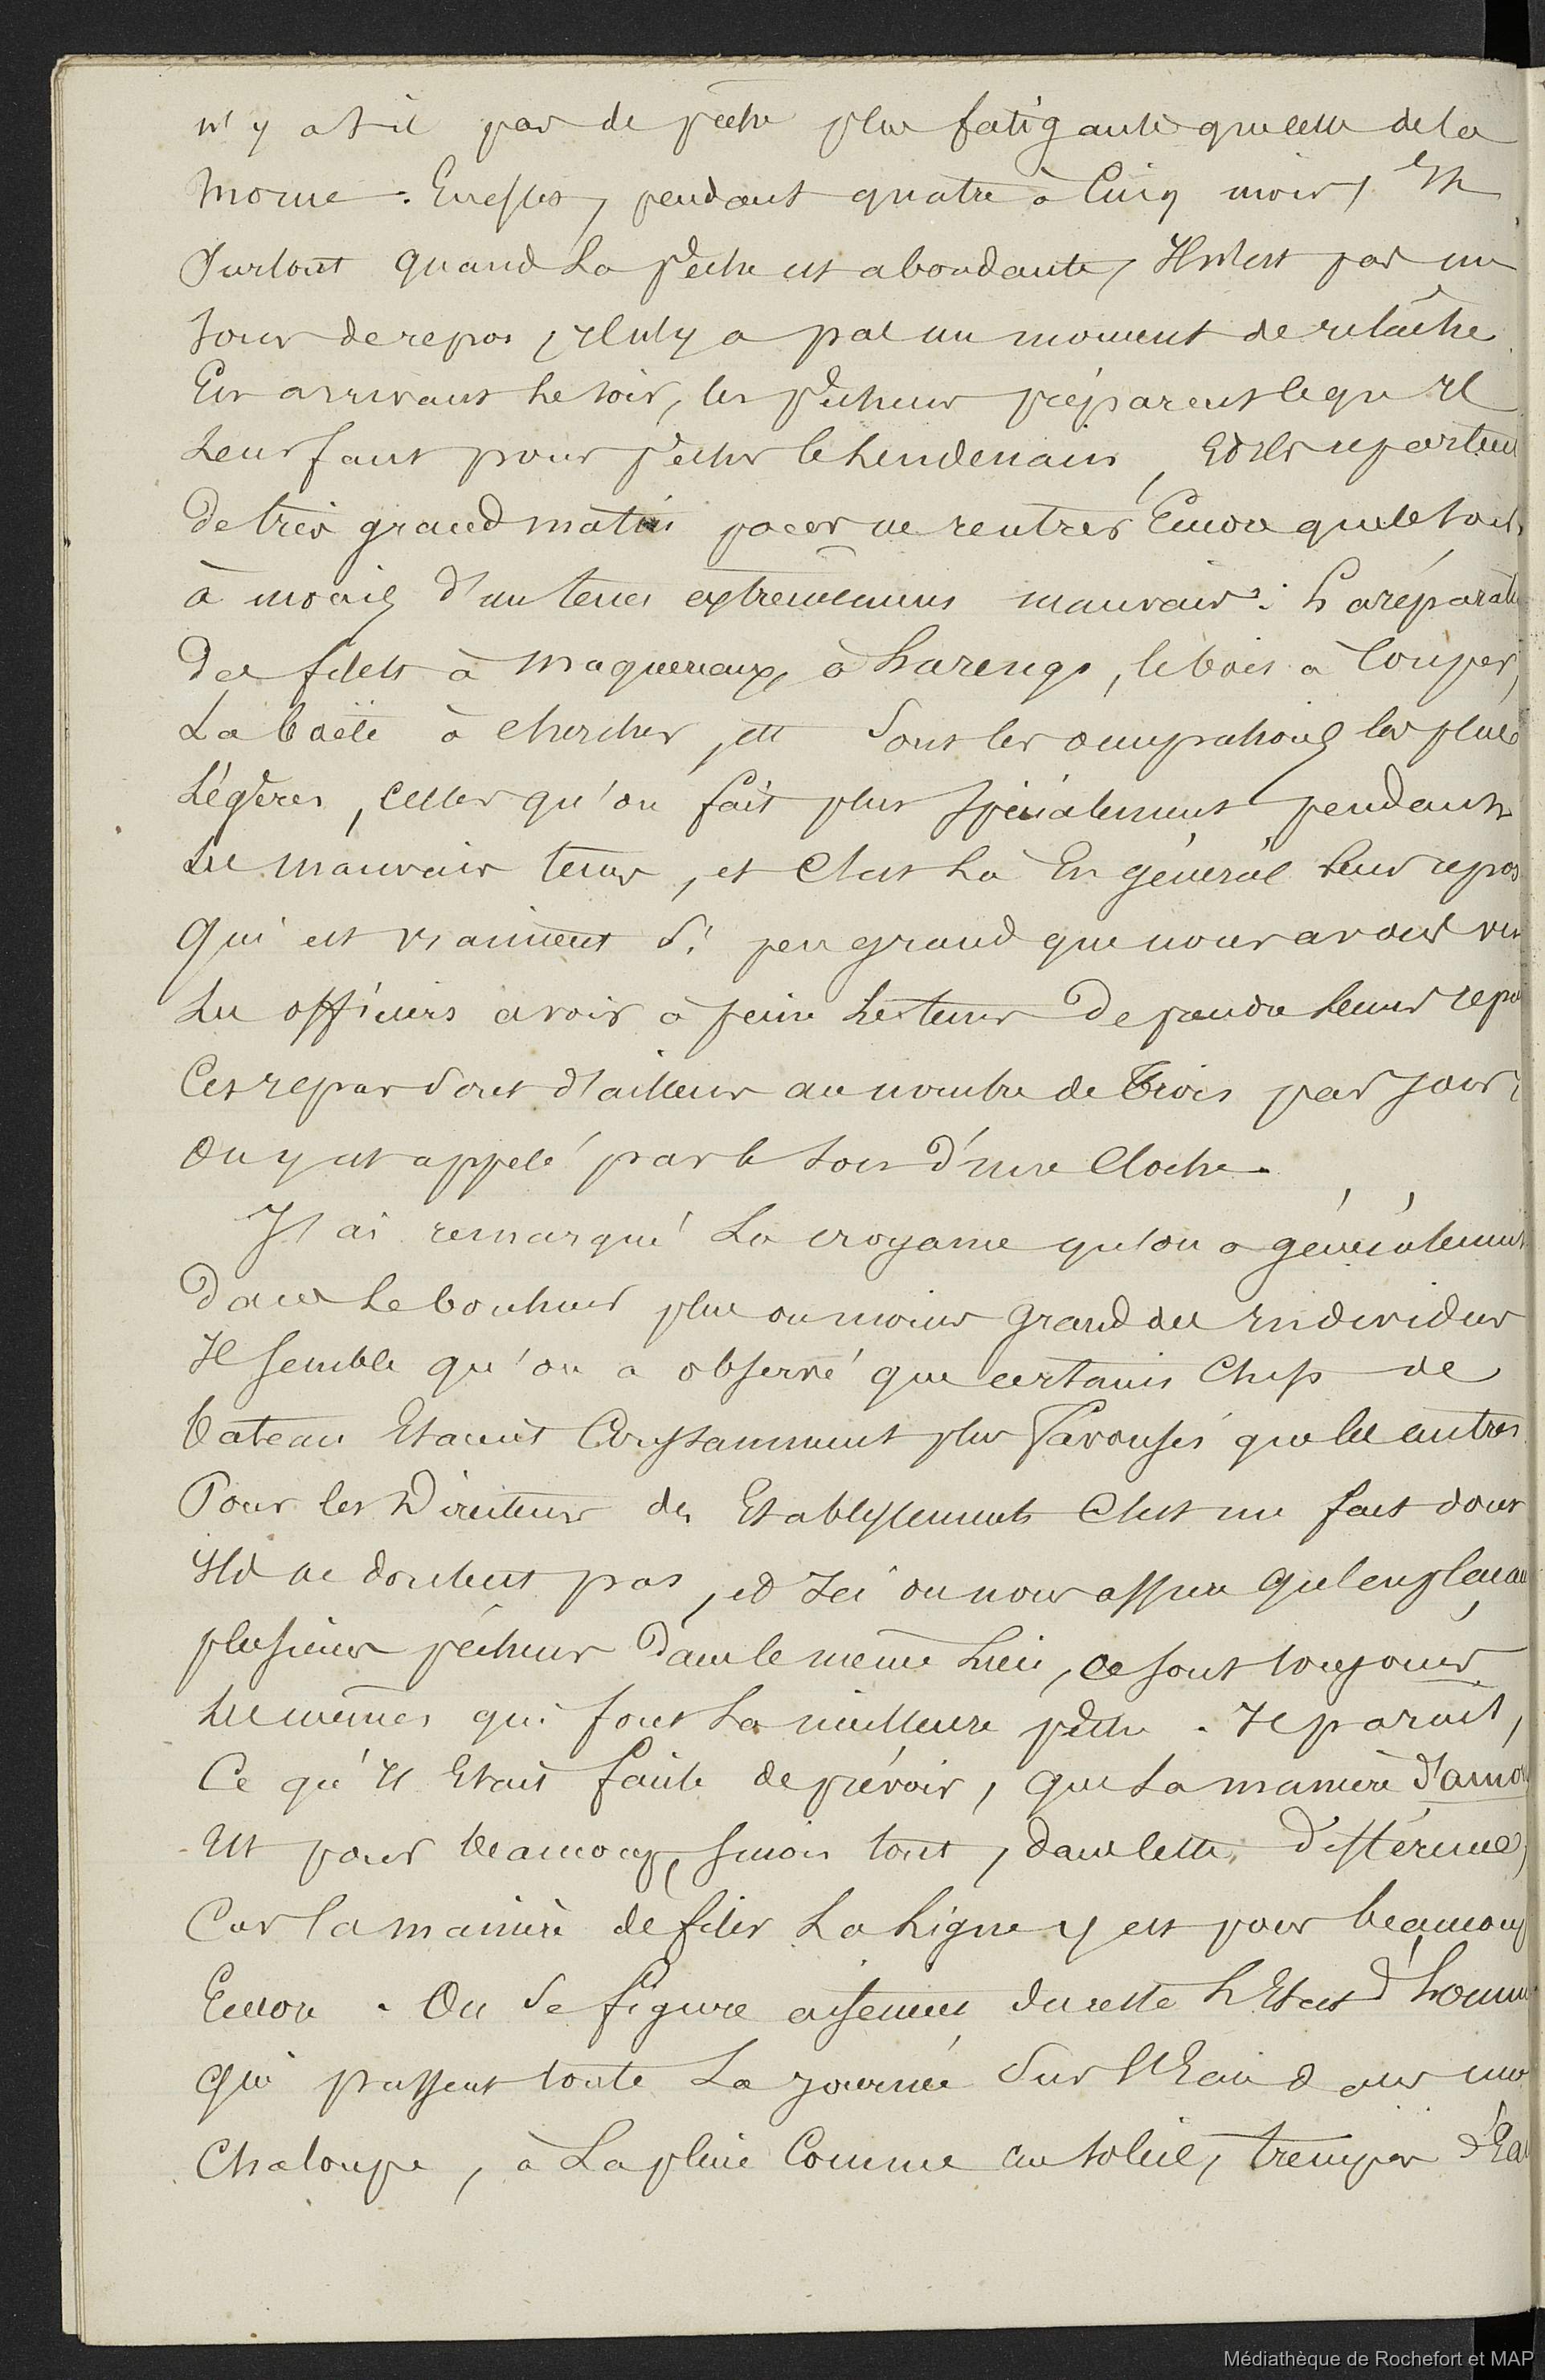 n'y a t-il pas de pêche plus fatigante que celle de la
morue. En effet, pendant quatre à cinq mois, Et
Surtout quand La pêche est abondante, Il n'est pas un
Jour de repos, Il n'y a pas un moment de relâche
En arrivant Le soir, les pêcheurs préparent ce qu'Il
Leur faut pour pêcher le Lendemain, Et Ils repartent
De très grand matin pour ne rentrer Encore que le soir,
à moins d'un tems extrêmement mauvais : La réparation
Des filets à maquereaux, à harengs, le bois à Couper,
La boëte à chercher, etc Sont les occupations les plus
Légères, Celles qu'on fait plus spécialement pendant
Le mauvais tems, et C'est Là En général Leur repos
Qui est vraiment Si peu grand que nous avons vu
Les officiers avoir à peine Le tems De prendre Leurs repas
Ces repas Sont d'ailleurs au nombre de Trois par jour,
On y est appelé par le son d'une Cloche.
J'ai remarqué La croyance qu'on a généralement
Dans Le bonheur plus ou moins grand des Individus
Il semble qu'on a observé que certains Chefs de
bateau Etaient Constamment plus favorisés que les autres
Pour les Directeurs des Etablissements C'est un fait dont
Ils ne doutent pas, et Ici on nous assure qu'en plaçant
plusieurs pêcheurs dans le même Lieu, ce sont toujours
Les mêmes qui font La meilleure pêche. Il parait,
Ce qu'Il Etait facile de prévoir, que La manière d'amor
Est pour beaucoup, sinon tout, dans cette différence,
Car la manière de filer La Ligne y est pour beaucoup
Encore. On Se figure aisement du reste L'Etat d'hommes
Qui passent toute La journée Sur l'Eau dans une
Chaloupe, à La pluie Comme au soleil, trempés d'Eau
Médiathèque de Rochefort et MAP